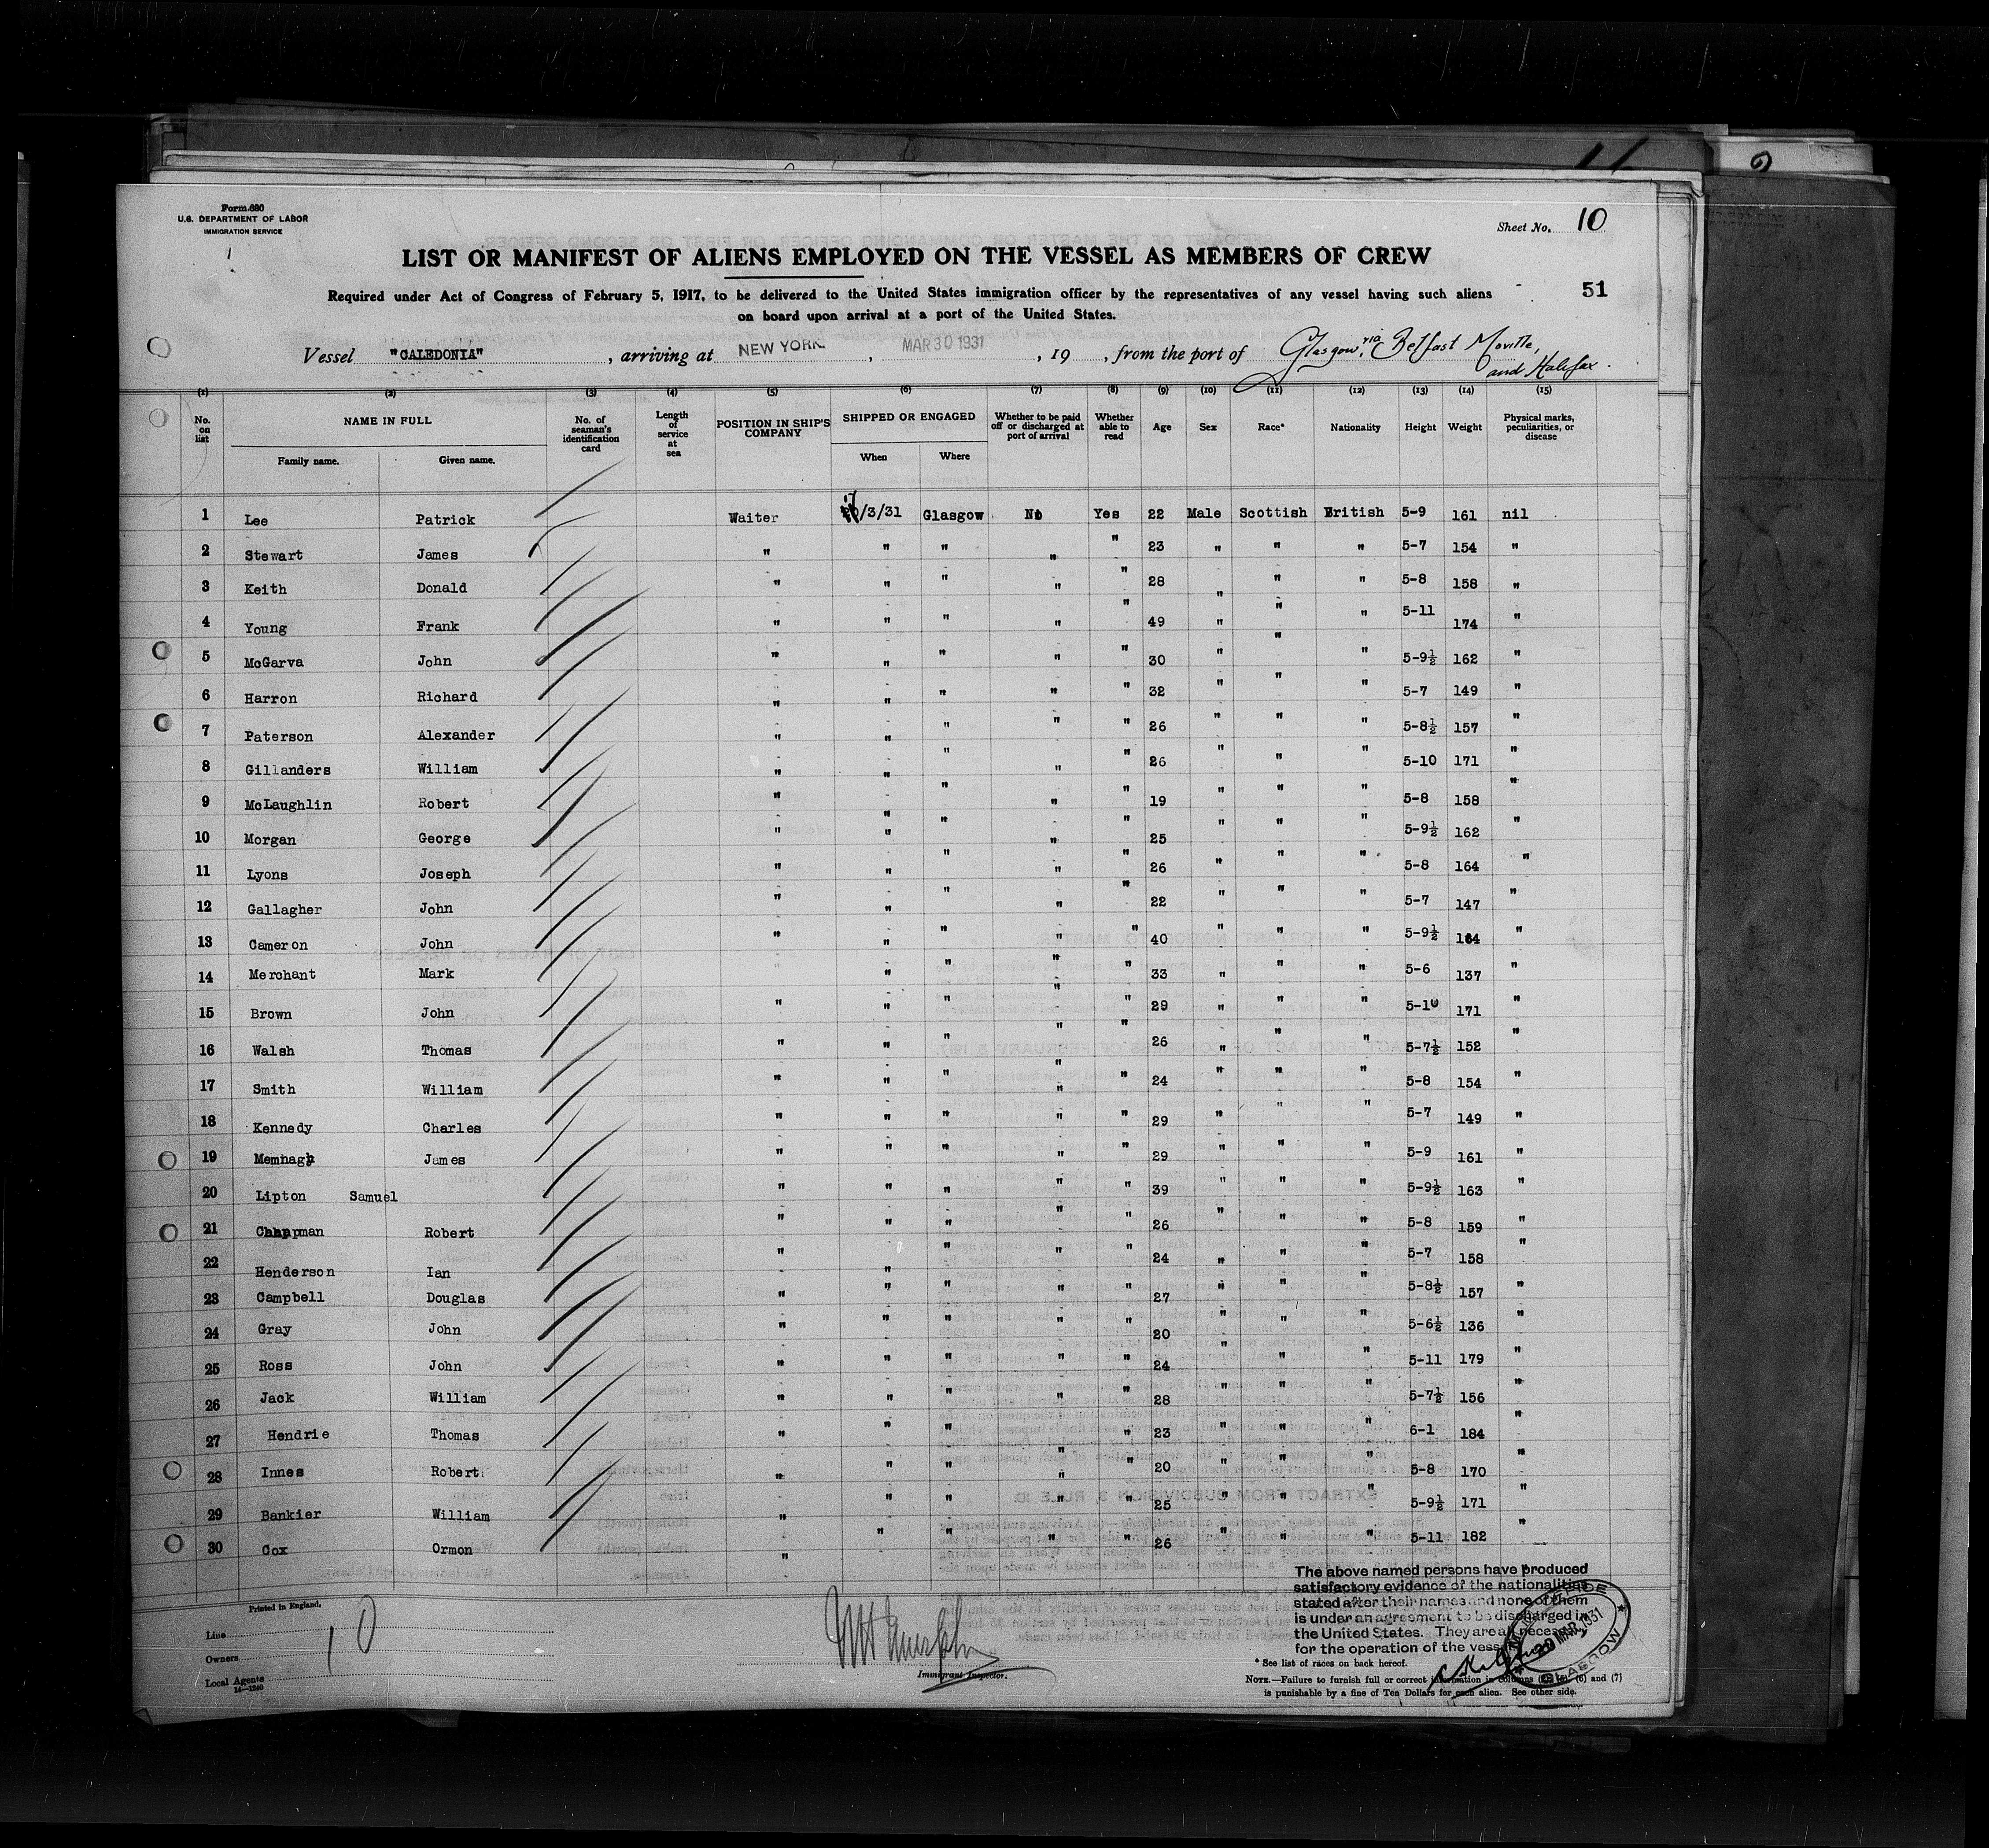 Form 680
U.S. DEPARTMENT OF LABOR
IMMIGRATION SERVICE
Sheet No. 10
LIST OR MANIFEST OF ALIENS EMPLOYED ON THE VESSEL AS MEMBERS OF CREW
Required under Act of Congress of February 5, 1917, to be delivered to the United States immigration officer by the representatives of any vessel having such aliens
on board upon arrival at a port of the United States.
51
Vessel "CALEDONIA", arriving at NEW YORK, MAR 30 1931, 19 , from the port of Glasgow, via Belfast Moville,
and Halifax.
(1) (2) (3) (4) (5) (6) (7) (8) (9) (10) (11) (12) (13) (14) (15)
No. on list NAME IN FULL No. of seaman's identification card Length of service at sea POSITION IN SHIP'S COMPANY SHIPPED OR ENGAGED Whether to be paid off or discharged at port of arrival Whether able to read Age Sex Race* Nationality Height Weight Physical marks, peculiarities, or disease
Family name. Given name. When Where
1 Lee Patrick Waiter /3/31 Glasgow No Yes 22 Male Scottish British 5-9 161 nil
2 Stewart James " " " " " 23 " " " 5-7 154 "
3 Keith Donald " " " " " 28 " " " 5-8 158 "
4 Young Frank " " " " " 49 " " " 5-11 174 "
5 McGarva John " " " " " 30 " " " 5-9½ 162 "
6 Harron Richard " " " " " 32 " " " 5-7 149 "
7 Paterson Alexander " " " " " 26 " " " 5-8½ 157 "
8 Gillanders William " " " " " 26 " " " 5-10 171 "
9 McLaughlin Robert " " " " " 19 " " " 5-8 158 "
10 Morgan George " " " " " 25 " " " 5-9½ 162 "
11 Lyons Joseph " " " " " 26 " " " 5-8 164 "
12 Gallagher John " " " " " 22 " " " 5-7 147 "
13 Cameron John " " " " " 40 " " " 5-9½ 164 "
14 Merchant Mark " " " " " 33 " " " 5-6 137 "
15 Brown John " " " " " 29 " " " 5-10 171 "
16 Walsh Thomas " " " " " 26 " " " 5-7½ 152 "
17 Smith William " " " " " 24 " " " 5-8 154 "
18 Kennedy Charles " " " " " 29 " " " 5-7 149 "
19 James " " " " " 29 " " " 5-9 161 "
20 Lipton Samuel " " " " " 39 " " " 5-9½ 163 "
21 Chapman Robert " " " " " 26 " " " 5-8 159 "
22 Henderson Ian " " " " " 24 " " " 5-7 158 "
23 Campbell Douglas " " " " " 27 " " " 5-8½ 157 "
24 Gray John " " " " " 20 " " " 5-6½ 136 "
25 Ross John " " " " " 24 " " " 5-11 179 "
26 Jack William " " " " " 28 " " " 5-7½ 156 "
27 Hendrie Thomas " " " " " 23 " " " 6-1 184 "
28 Innes Robert " " " " " 20 " " " 5-8 170 "
29 Bankier William " " " " " 25 " " " 5-9½ 171 "
30 Cox Ormon " " " " " 26 " " " 5-11 182 "
Printed in England.
Line
Owners
Local Agents
14-1240
10
Immigrant Inspector.
The above named persons have produced
satisfactory evidence of the nationalities
stated after their names and none of them
is under an agreement to be discharged in
the United States. They are all necessary
for the operation of the vessel
20 MAR 1931
GLASGOW
* See list of races on back hereof.
NOTE.—Failure to furnish full or correct information in columns (6) and (7)
is punishable by a fine of Ten Dollars for each alien. See other side.